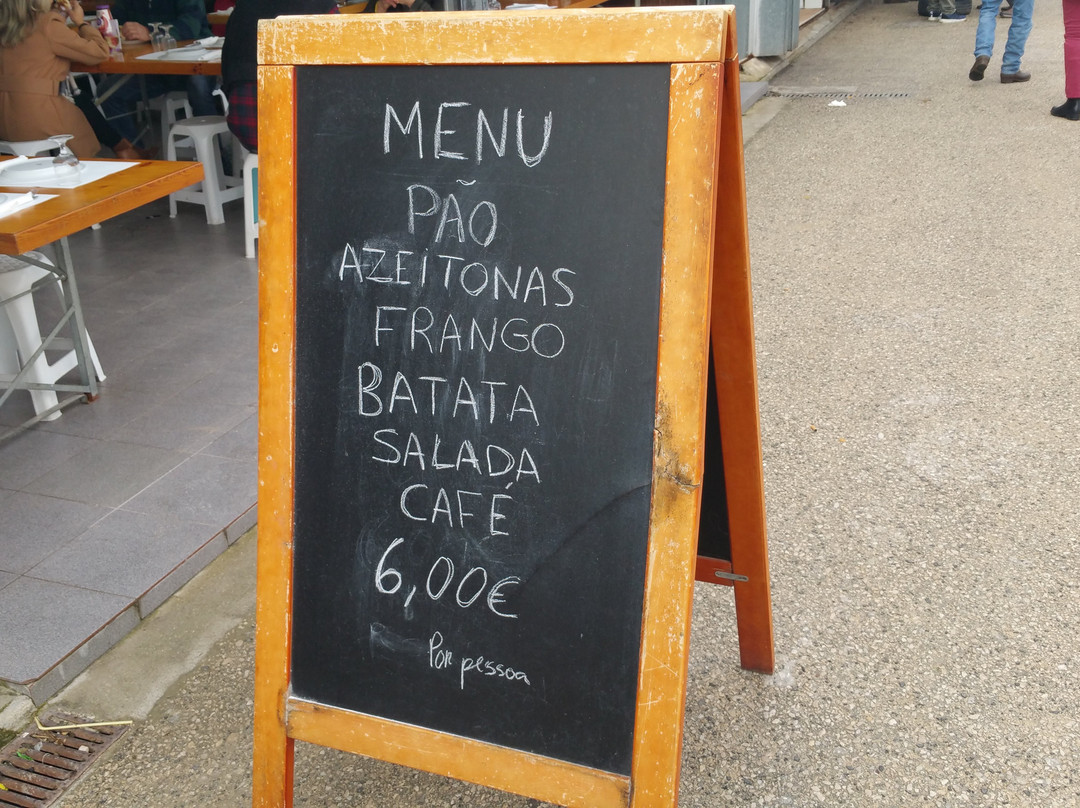 MENU
PÃO
AZEITONAS
FRANGO
BATATA
SALADA
CAFÉ
6,00€
Por pessoa